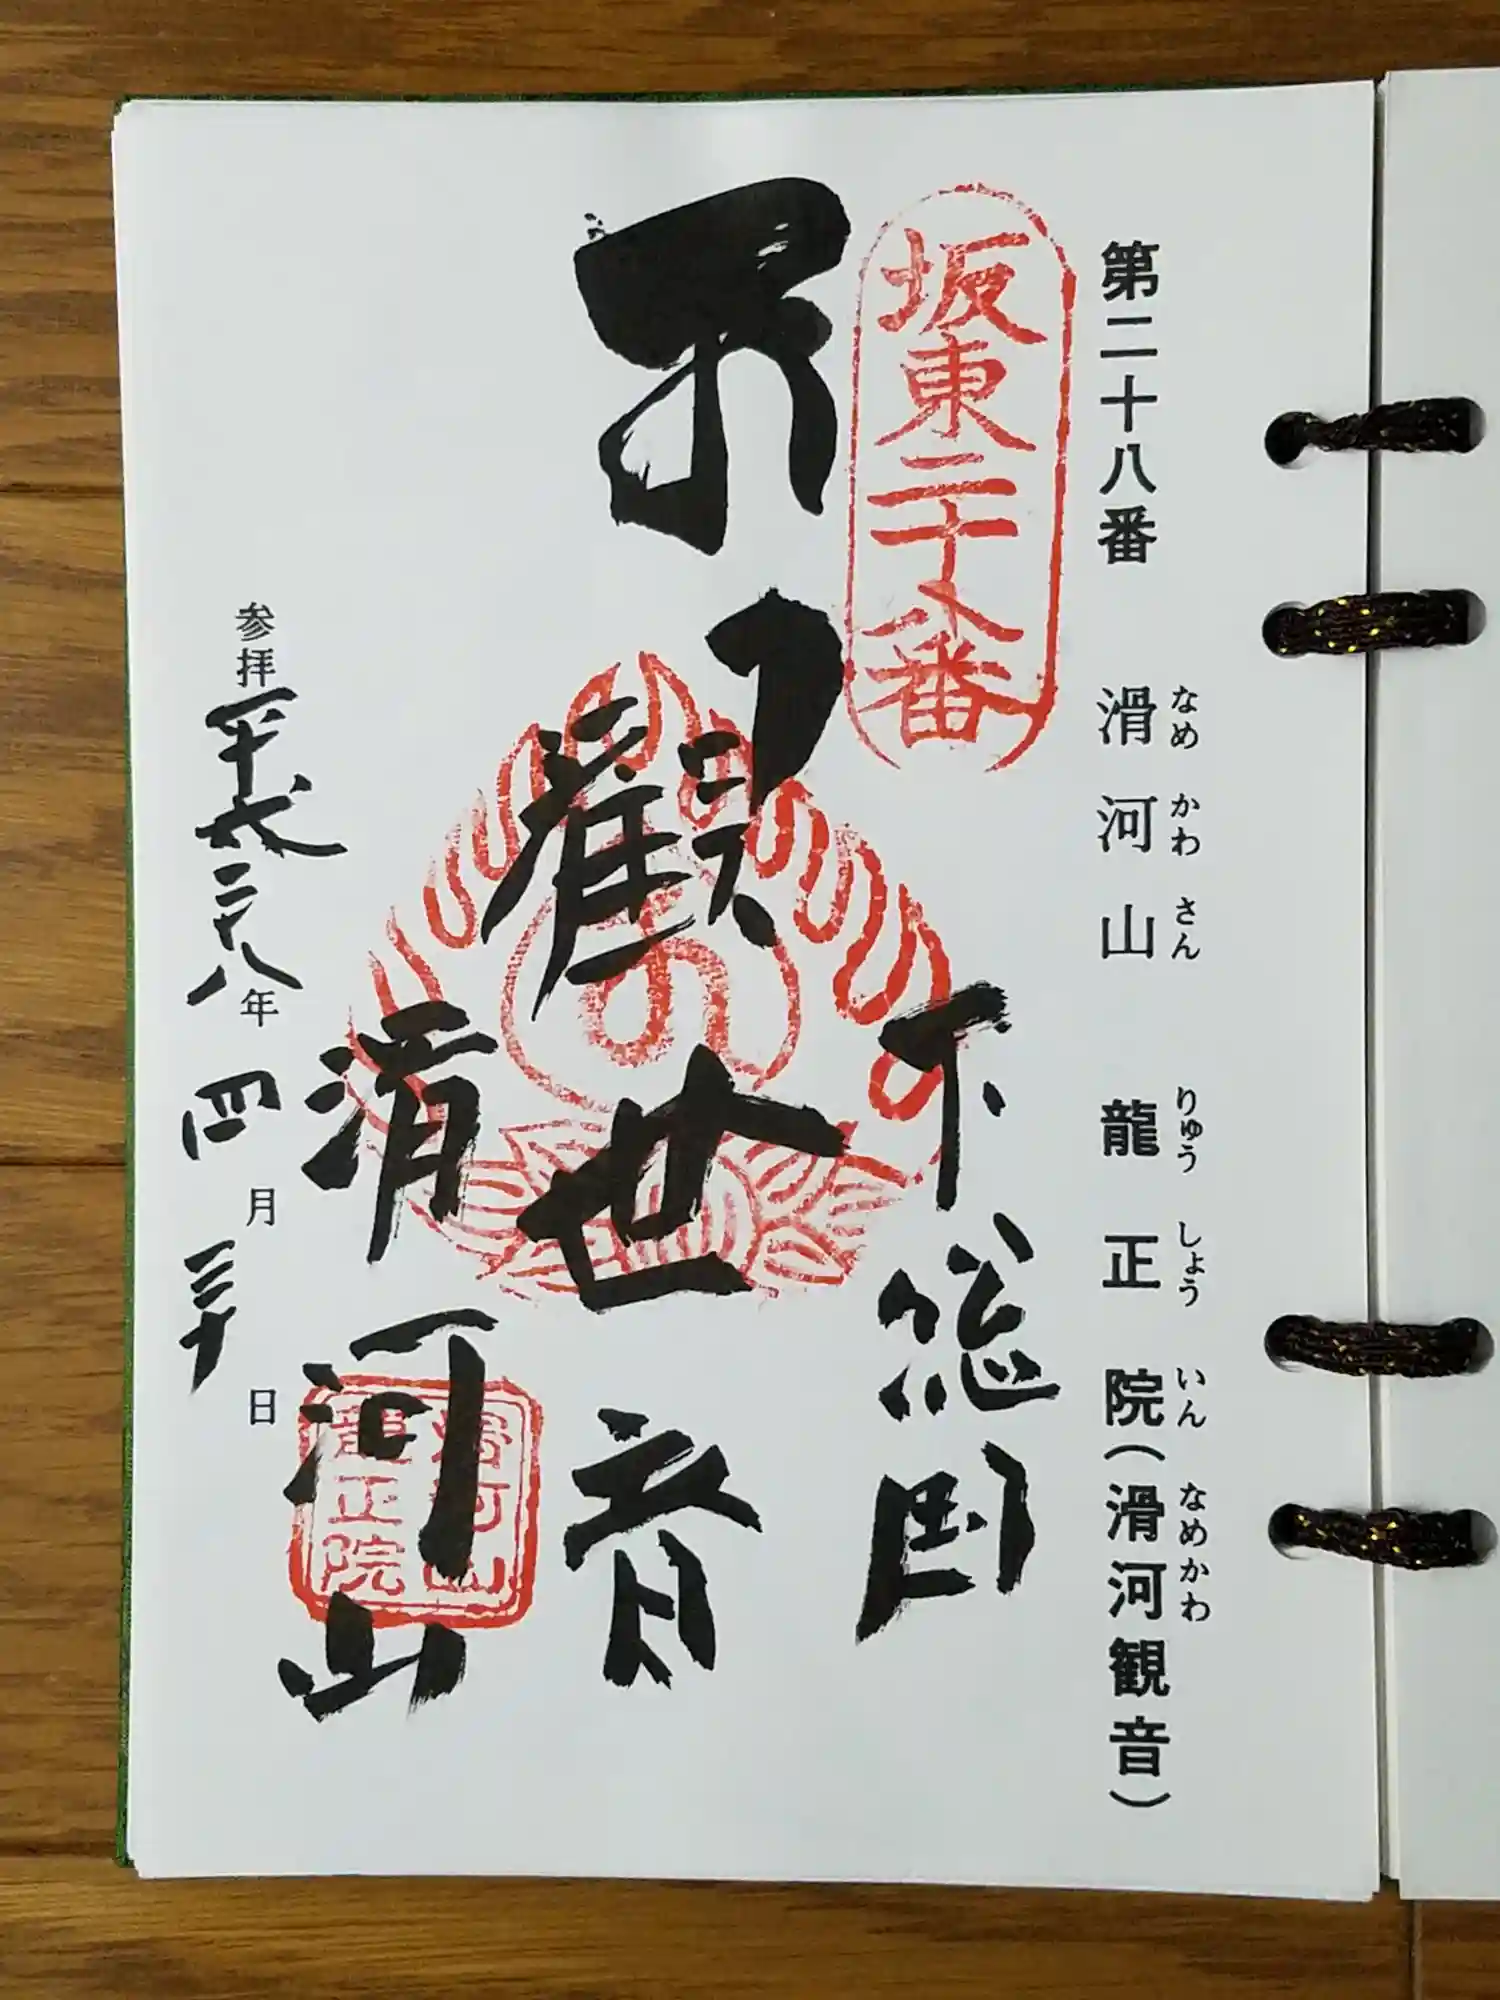 第二十八番 滑河山 龍正院(滑河観音)
なめ かわ さん りゅう しょう いん なめかわ
坂東二十八番
下総国
觀世音
滑河山
滑河山
龍正院
参拝 平成二十八年 四月 三十日